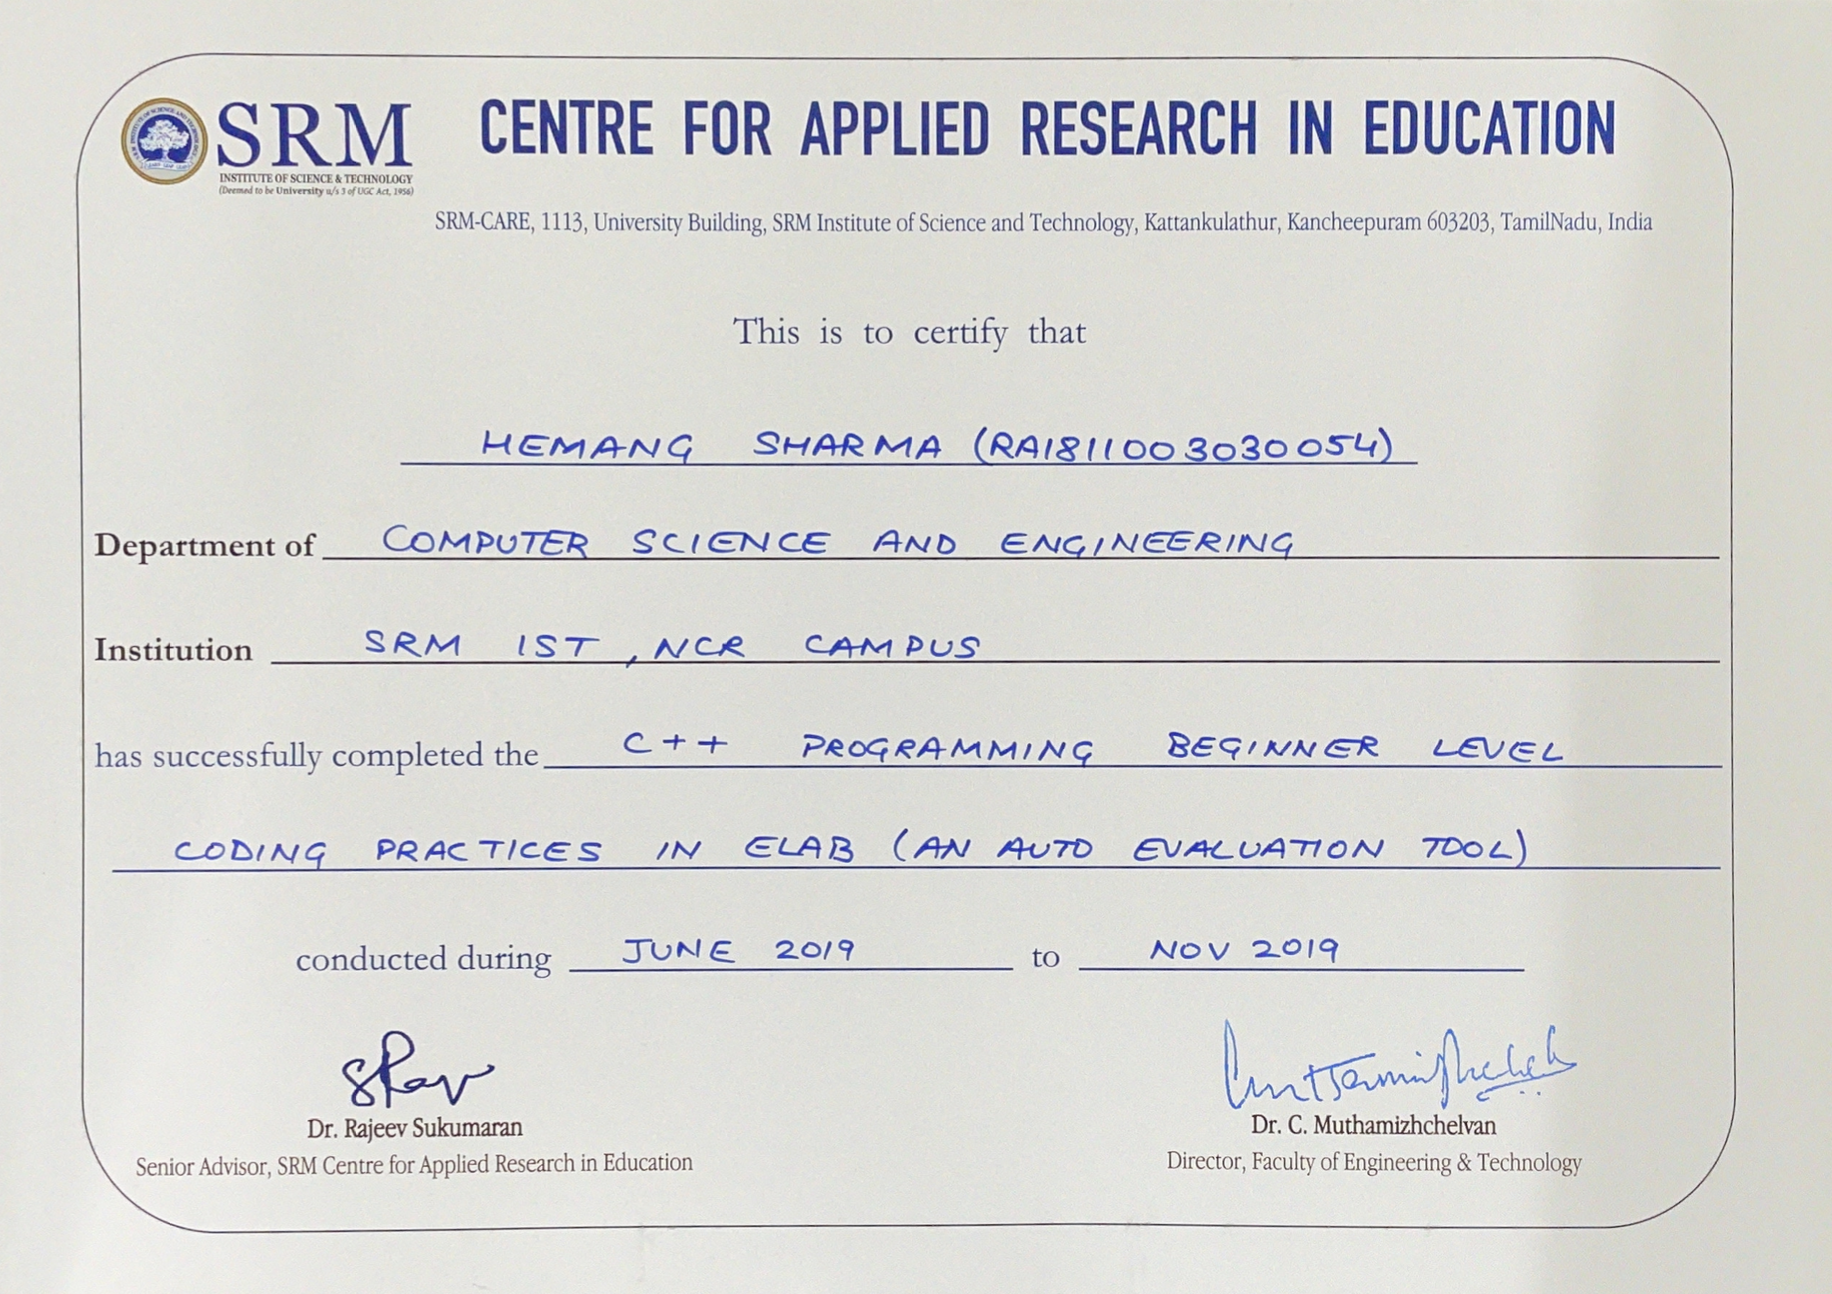 SRM
INSTITUTE OF SCIENCE & TECHNOLOGY
(Deemed to be University u/s 3 of UGC Act, 1956)
CENTRE FOR APPLIED RESEARCH IN EDUCATION
SRM-CARE, 1113, University Building, SRM Institute of Science and Technology, Kattankulathur, Kancheepuram 603203, TamilNadu, India
This is to certify that
HEMANG SHARMA (RA1811003030054)
Department of COMPUTER SCIENCE AND ENGINEERING
Institution SRM IST, NCR CAMPUS
has successfully completed the C++ PROGRAMMING BEGINNER LEVEL
CODING PRACTICES IN ELAB (AN AUTO EVALUATION TOOL)
conducted during JUNE 2019 to NOV 2019
Dr. Rajeev Sukumaran
Senior Advisor, SRM Centre for Applied Research in Education
Dr. C. Muthamizhchelvan
Director, Faculty of Engineering & Technology